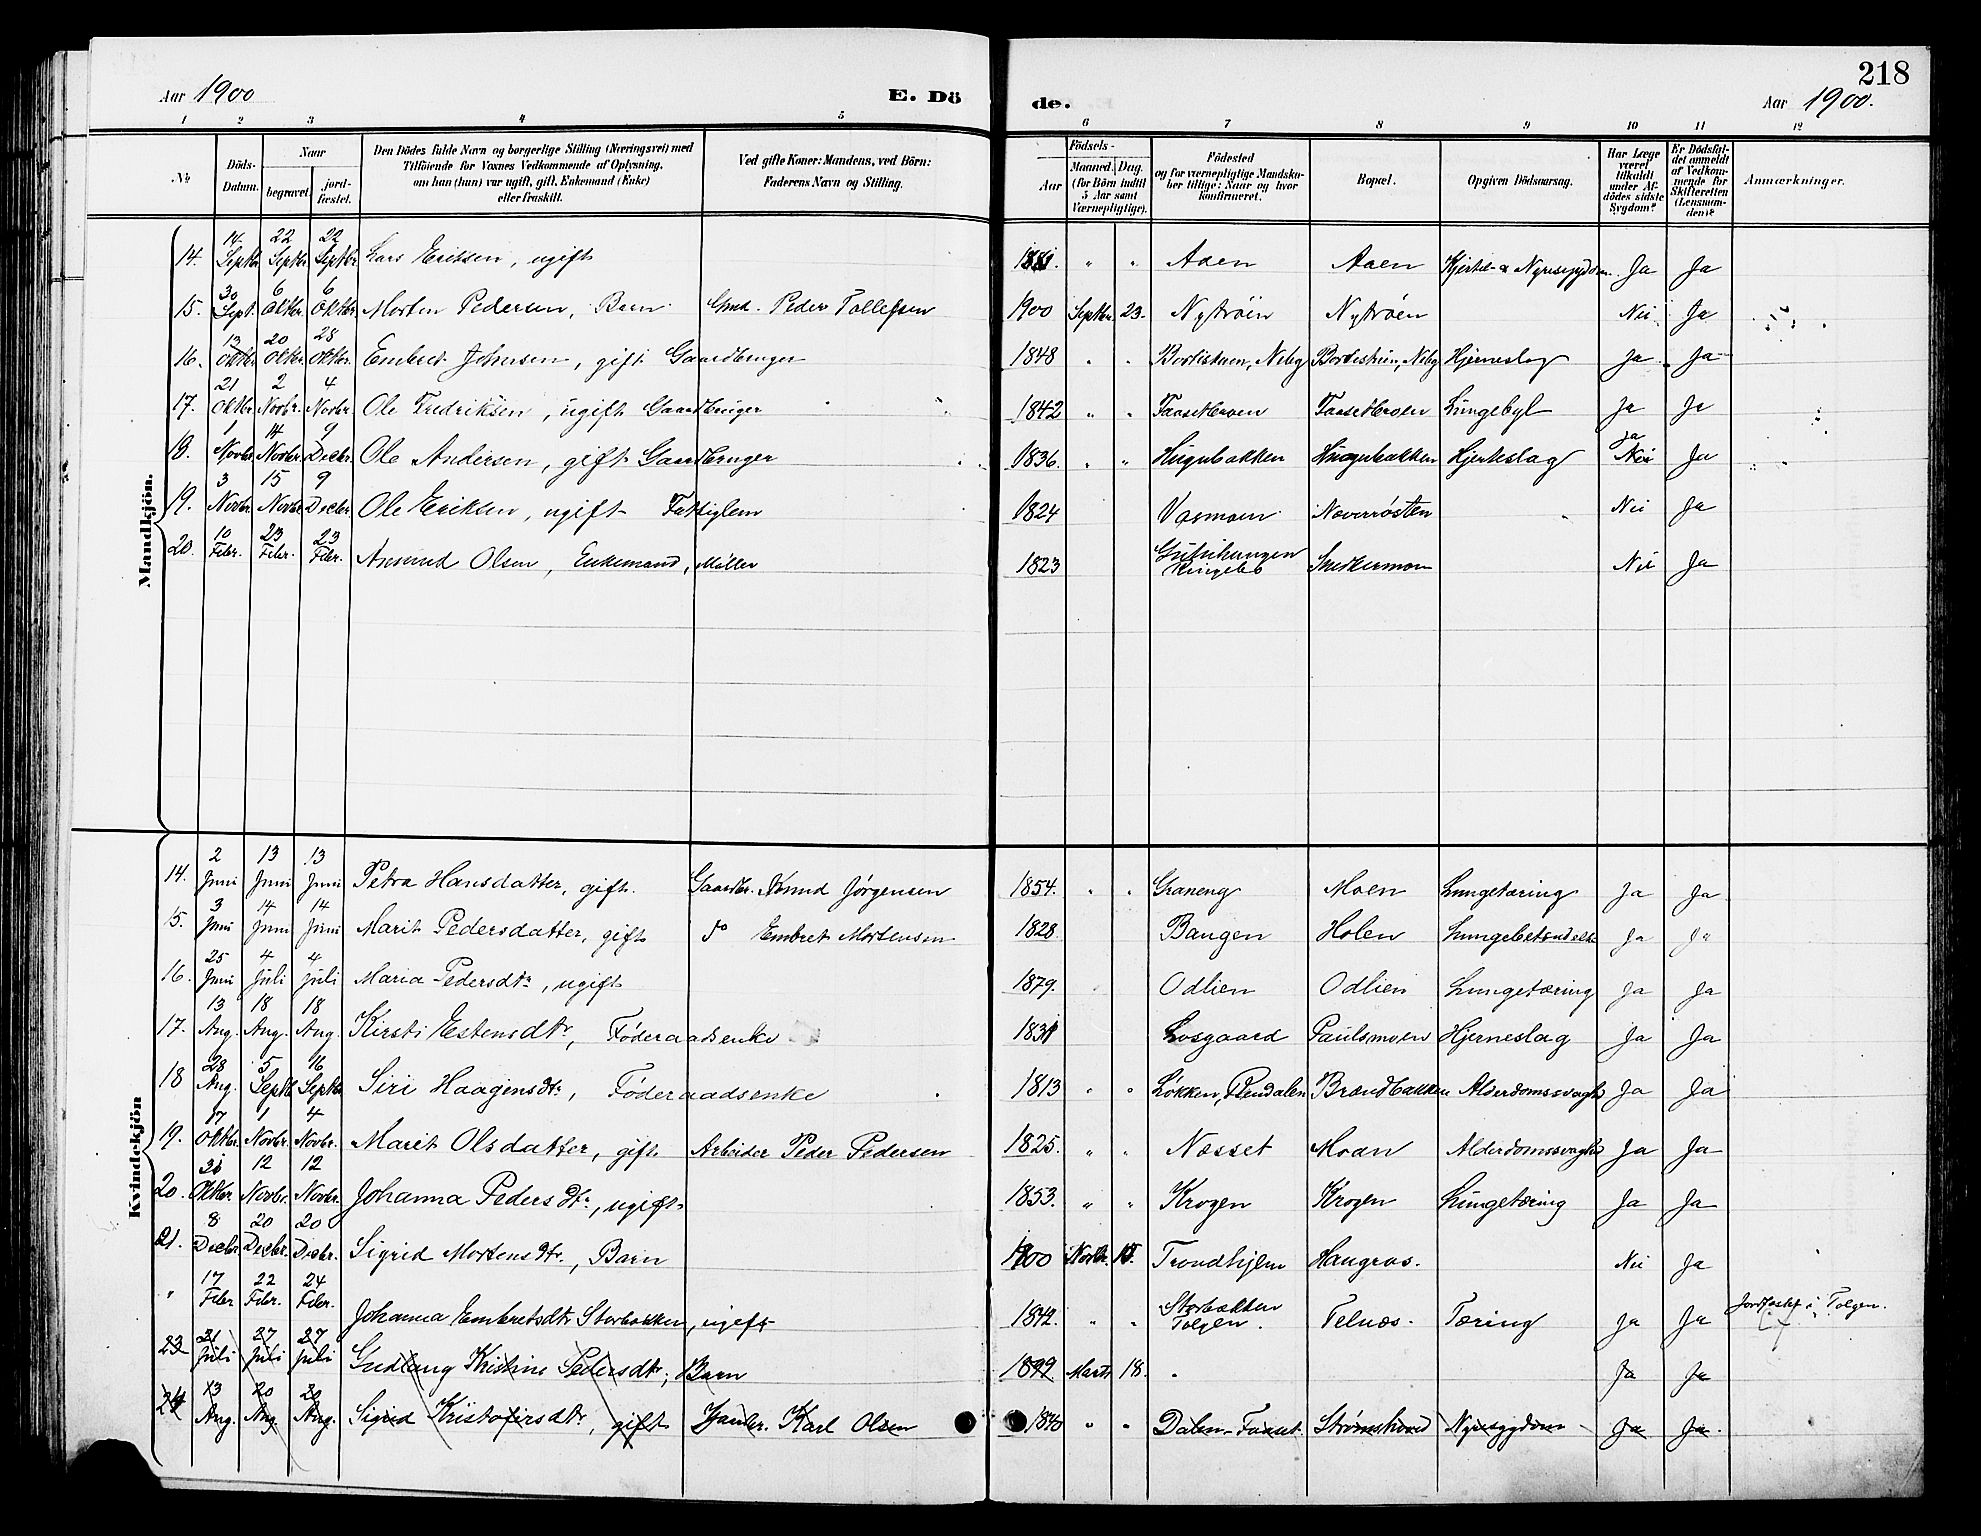 Aar 1900
E. Dö
de.
218
Aar 1900.
1 2 3 4 5 6 7 8 9 10 11 12
No
Döds-Datum.
Naar
begravet.
jord-fæstet.
Den Dödes fulde Navn og borgerlige Stilling (Næringsvei) med
Tilföiende for Voxnes Vedkommende af Oplysning,
om han (hun) var ugift, gift, Enkemand (Enke)
eller fraskilt.
Ved gifte Koner: Mandens, ved Börn:
Faderens Navn og Stilling.
Födsels-
Aar
Maaned. Dag.
(for Börn indtil
5 Aar samt
Værnepligtige).
Födested
og for værnepligtige Mandska-
ber tillige: Naar og hvor
konfirmeret.
Bopæl.
Opgiven Dödsaarsag.
Har Læge
været
tilkaldt
under Af-
dödes sidste
Sygdom?
Er Dödsfal-
det anmeldt
af Vedkom-
mende for
Skifteretten
(Lensman-
den)?
Anmærkninger.
Mandkjön.
14. 14 Septbr 22 Septbr 22 Septbr. Lars Eriksen, ugift 1881. " " Aaen Aaen Kjertel- & Nyresygdom Ja Ja
15. 30 Sept. 6 Oktbr. 6 Oktbr Morten Pedersen, Barn Gmd. Peder Tollefsen 1900 Septbr. 23. Nytröen Nytröen Nei Ja
16. 13 Oktbr 20 Oktbr. 28 Oktbr. Embret Johnsen, gift Gaardbruger 1848 " " Hjerneslag Ja Ja
17. 21 Oktbr. 2 Novbr. 4 Novbr. Ole Fredriksen, ugift Gaardbruger 1842 " " Faasetbroen Faasetbroen Lungebyl Ja Ja
18. 1 Novbr. 14 Novbr. 9 Decbr. Ole Andersen, gift Gaardbruger 1836 " " Hugubakken Hugubakken Hjerteslag Ja Nei Ja
19. 3 Novbr. 15 Novbr 9 Decbr. Ole Eriksen, ugift Fattiglem 1824 Vosmoen Næverrøsten Nei Ja
20. 10 Febr. 23 Febr. 23 Febr. Amund Olsen, Enkemand, Møller 1823 Ringebo Snedkermoen Nei Ja
Kvindekjön
14. 2 Juni 13 Juni 13 Juni Petra Hansdatter, gift. Gaardbr. Amund Jørgensen 1854. " " Graneng Moen Lungetæring Ja Ja
15. 3 Juni 14 Juni 14 Juni Marit Pedersdatter, gift do Embret Mortensen 1828. Bangen Holen Lungebetændelse Ja Ja
16. 25 Juni 4 Juli 4 Juli Maria Pedersdtr, ugift 1879. Odlien Odlien Lungetæring Ja Ja
17. 13 Aug. 18 Aug. 18 Aug. Kirsti Estensdtr, Føderaadsenke 1831 Losgaard Paulsmoen Hjerneslag Ja Ja
18 28 Aug. 5 Septbr 16 Septbr Siri Haagensdtr, Føderaadsenke 1813 " " Løkken, Rendalen Brændbakken Alderdomssvaghed Ja Ja
19. 17 Oktbr. 1 Novbr. 4 Novbr. Marit Olsdatter, gift Arbeider Peder Pedersen 1825. " " Næsset Moan Alderdomssvaghed Ja Ja
20. Oktbr 12 Novbr. 12 Novbr. Johanna Pedersdtr, ugift 1853. " " Krogen Krogen Lungetæring Ja Ja
21. 8 Decbr. 20 Decbr. 20 Decbr. Sigrid Mortensdtr, Barn 1900 Novbr. Trondhjem Haugros. Nei Ja
" 17 Febr 22 Febr. 24 Febr. Johanna Embretsdtr Storbakken, ugift 1842. " " Storbækken Tolgen. Telnæs. Tæring Ja Ja Jordfæstet i Tolgen.
23 21 Juli 27 Juli 27 Juli Gudlaug Kristine Pedersdtr, Barn 1899 Marts 18. Ja Ja
24 13 Aug. 20 Aug. 20 Aug. Sigrid Kristofersdtr, gift Karl Olsen 1840 " " Dalen-Faaset. Strømshoved Nyresygdom Ja Ja.